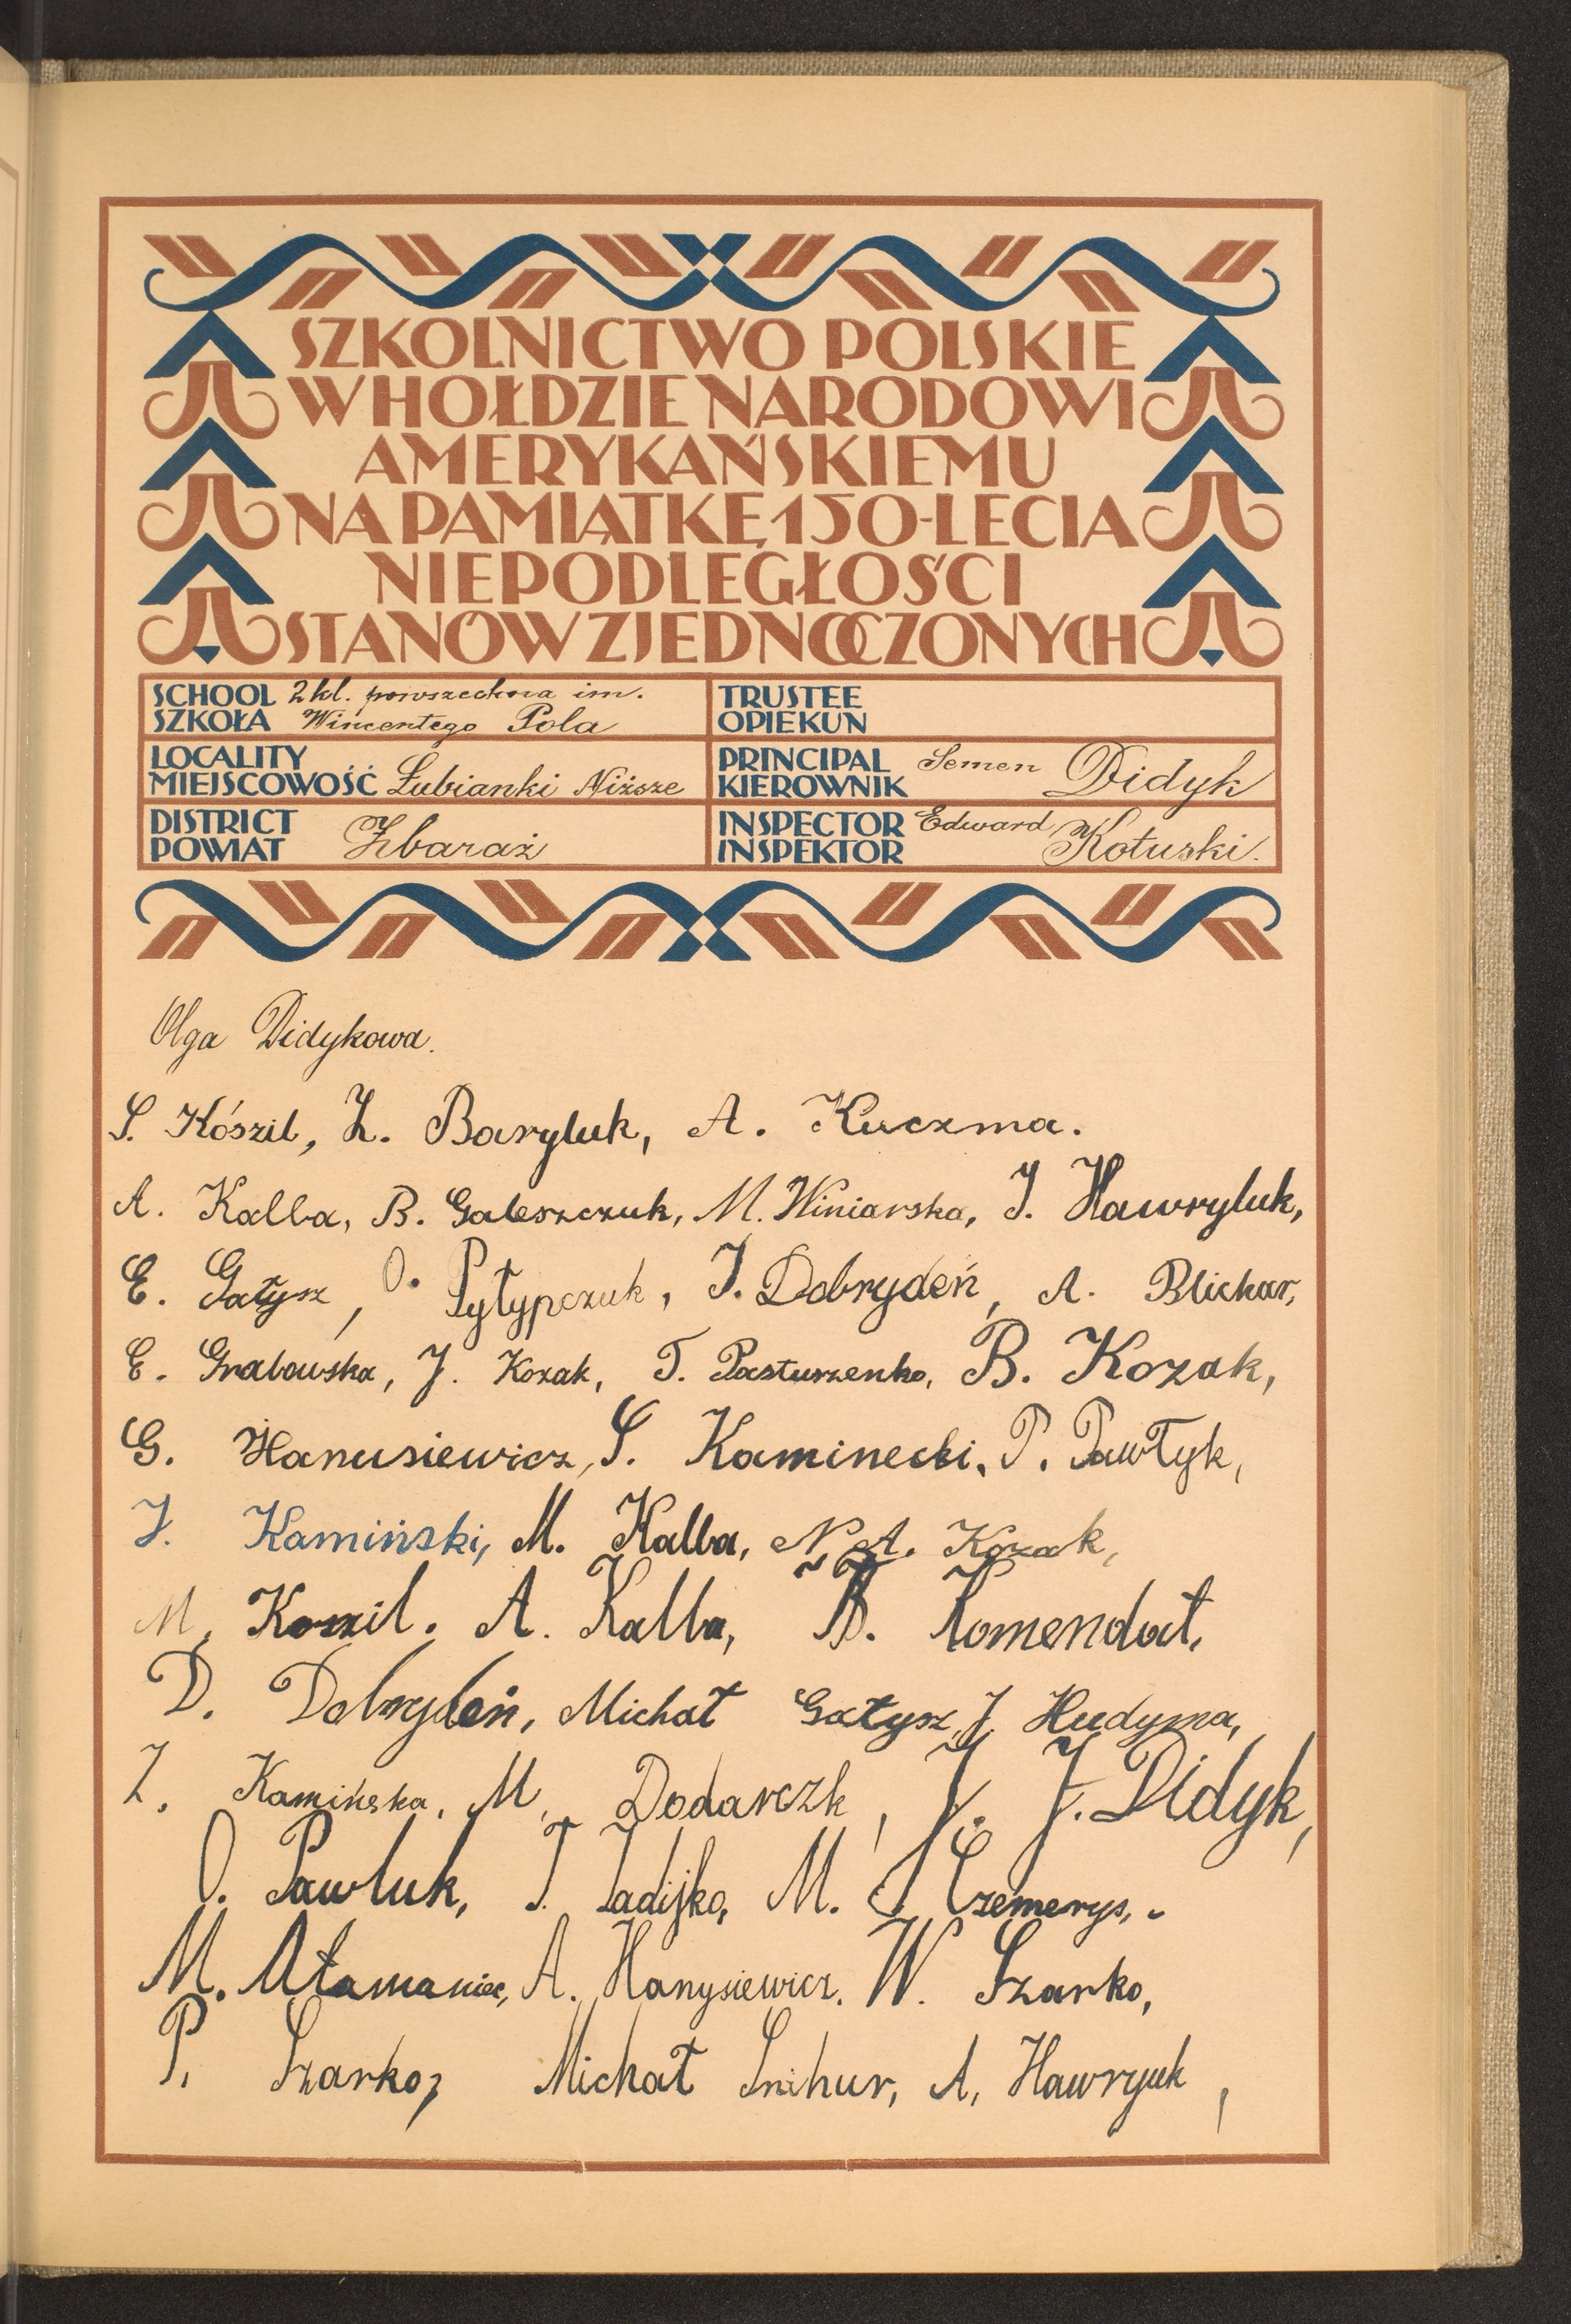 SZKOLNICTWO POLSKIE
W HOŁDZIE NARODOWI
AMERYKAŃSKIEMU
NA PAMIĄTKĘ 150-LECIA
NIEPODLEGŁOŚCI
STANÓW ZJEDNOCZONYCH
SCHOOL 2 kl. powszechna im.
SZKOŁA Wincentego Pola
TRUSTEE
OPIEKUN
LOCALITY
MIEJSCOWOŚĆ Łubianki Niższe
PRINCIPAL Semen Didyk
KIEROWNIK
DISTRICT Zbaraż
POWIAT
INSPECTOR Edward Kotuski.
INSPEKTOR
Olga Didykowa.
S. Kószil, Z. Baryluk, A. Kuczma.
A. Kalba, B. Galeszczuk, M. Winiarska, J. Hawryluk,
E. Gałysz, O. Pyłypczuk, J. Dobrydeń, A. Blichar,
E. Grabowska, J. Kozak, T. Pasturzenko, B. Kozak,
G. Hanusiewicz, S. Kaminecki, P. Pawłyk,
J. Kamiński, M. Kalba, N. A. Kozak,
M. Koszil. A. Kalba, B. Komendat,
D. Dobrydeń, Michał Gałysz, J. Hudyma,
Z. Kamińska, M. Dodarczk, J. J. Didyk,
O. Pawluk, T. Ladijko, M. Czemerys,
M. Atamaniec, A. Hanysiewicz. W. Szarko,
P. Szarko, Michał Snihur, A, Hawryuk,